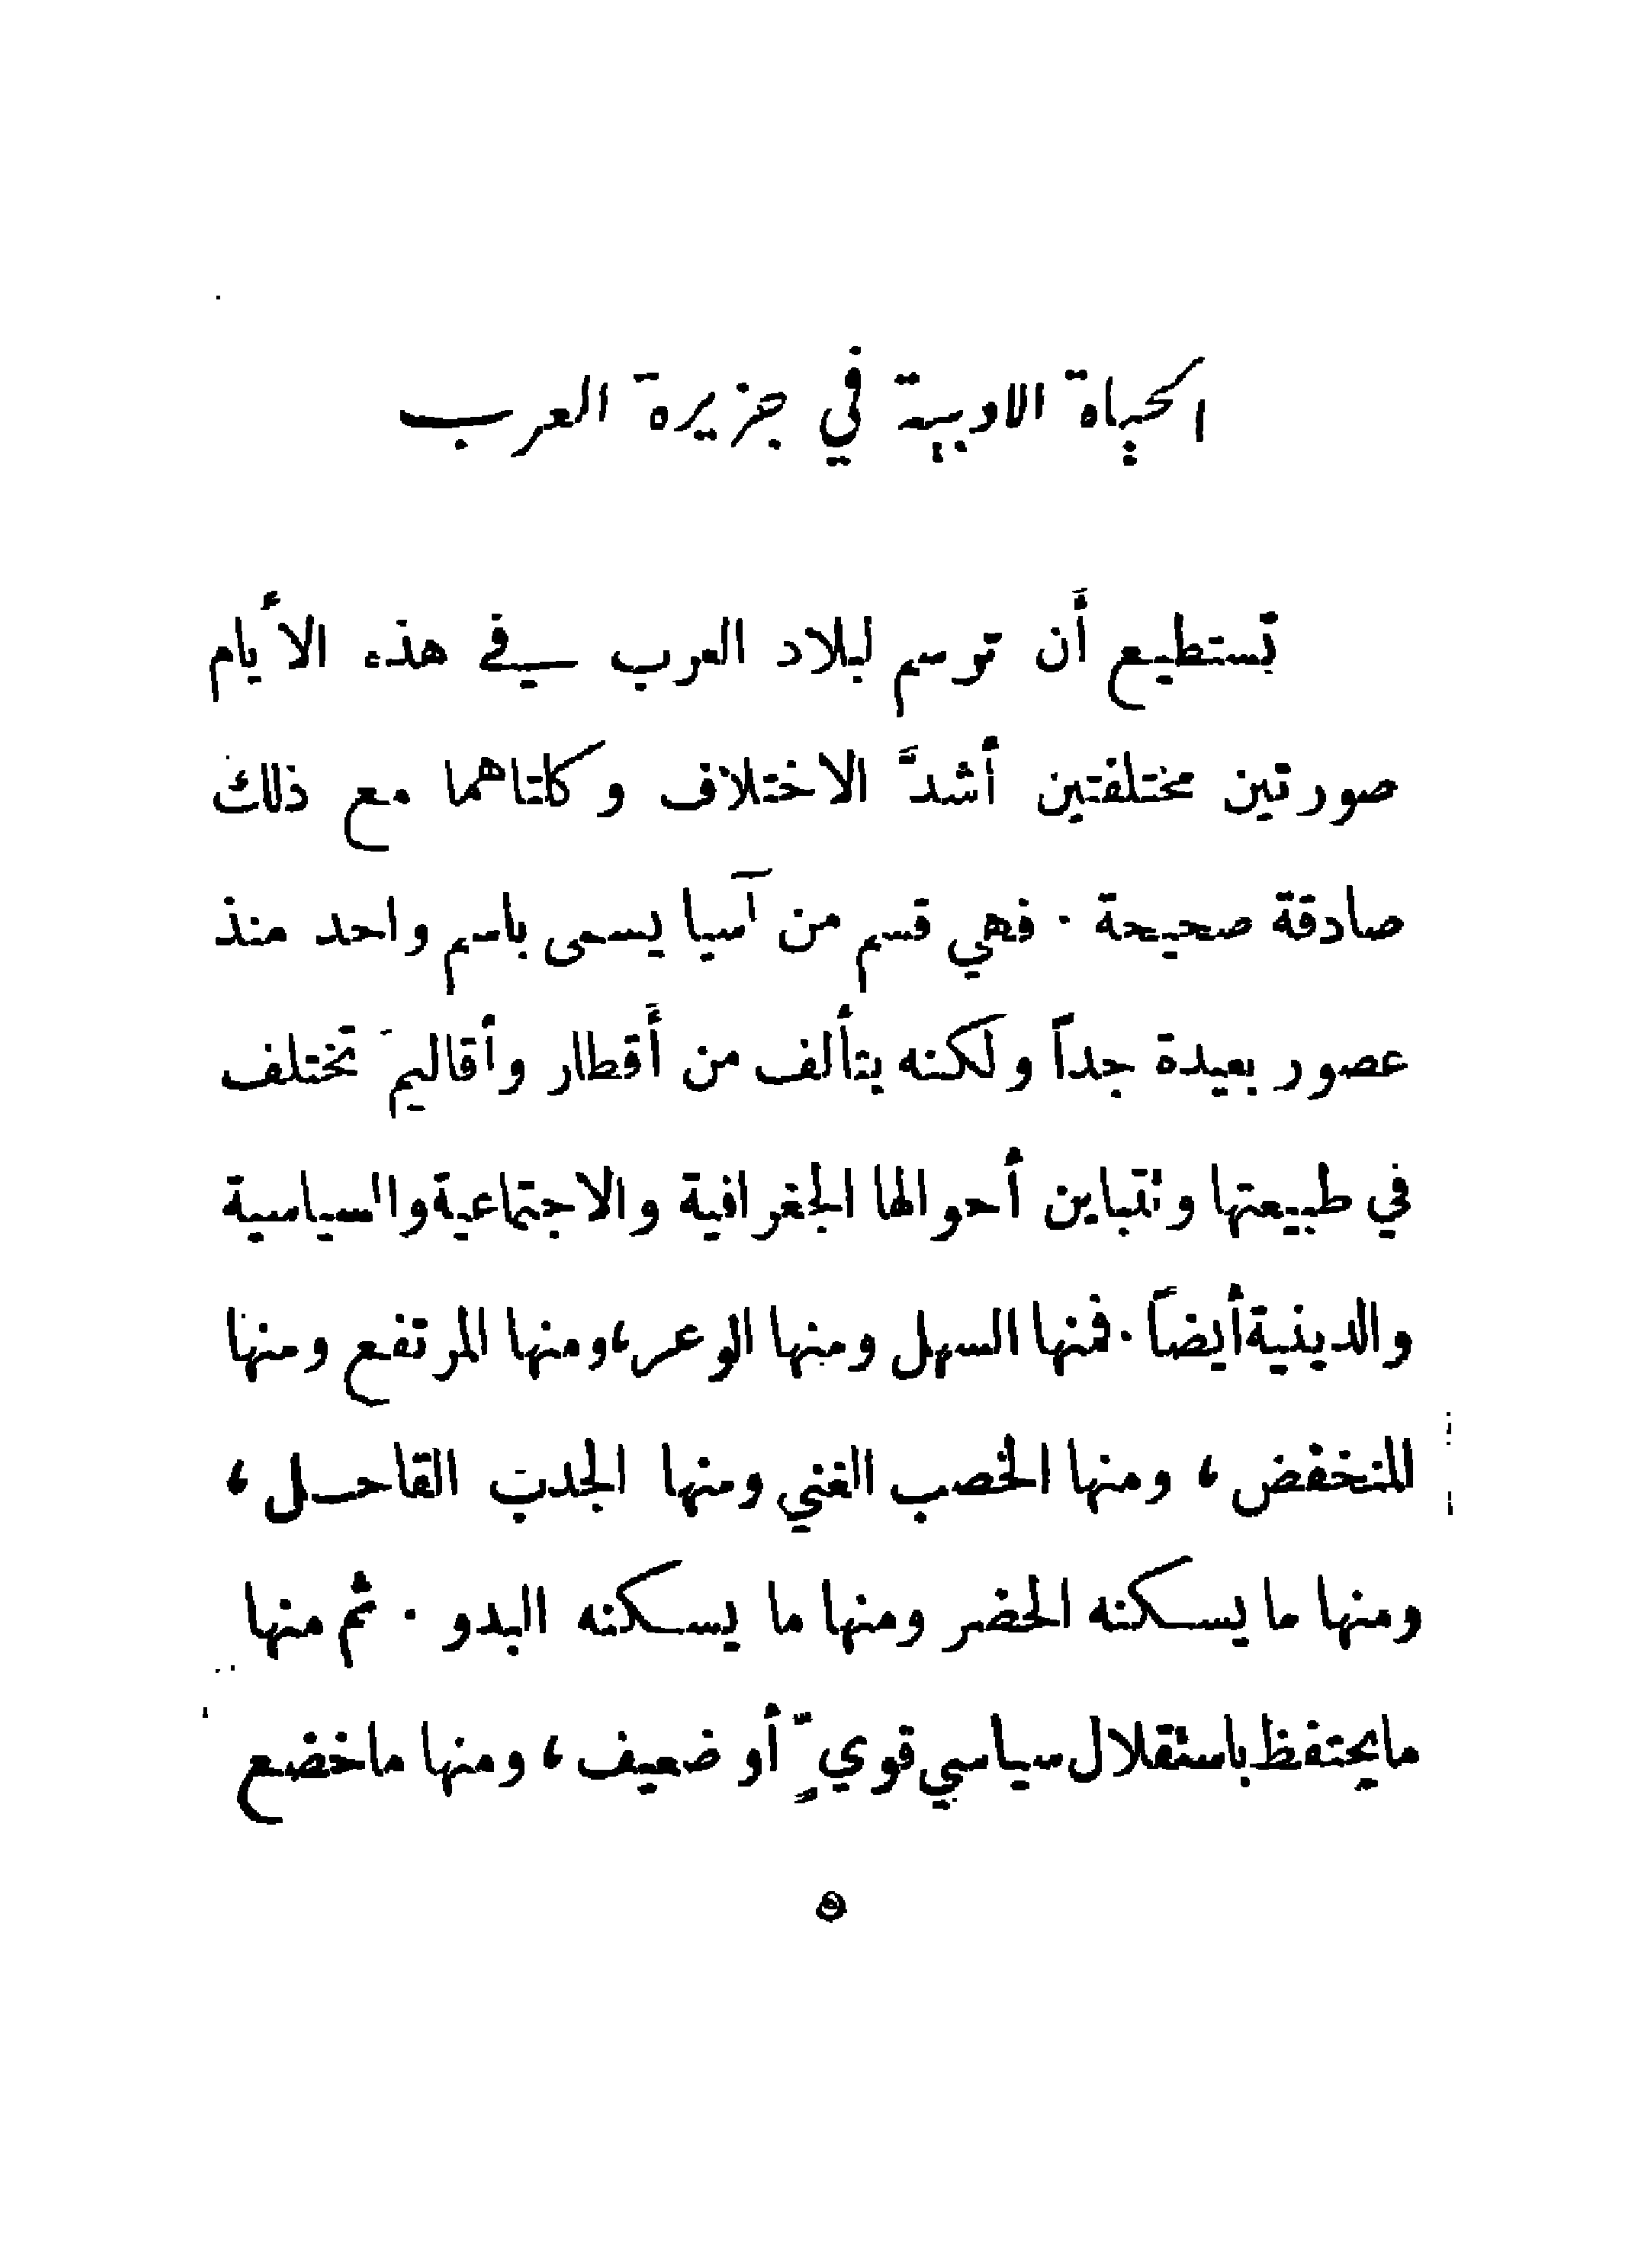 الحياة الادبية في جزيرة العرب
تستطيع أَن ترسم لبلاد العرب في هذه الأيام
صورتين مختلفتين أشدَّ الاختلاف وكلتاهما مع ذلك
صادقة صحيحة . فهي قسم من آسيا يسمى باسم واحد منذ
عصور بعيدة جداً ولكنه يتألف من أَقطار وأقاليمَ تختلف
في طبيعتها وتتباين أحوالها الجغرافية والاجتماعية والسياسية
والدينية أيضاً . فمنها السهل ومنها الوعر، ومنها المرتفع ومنها
المنخفض ، ومنها الخصب الغني ومنها الجدب القاحل ،
ومنها ما يسكنه الحضر ومنها ما يسكنه البدو . ثم منها
ما يحتفظ باستقلال سياسي قويّ ٍ أو ضعيف ، ومنها ما خضع
٥